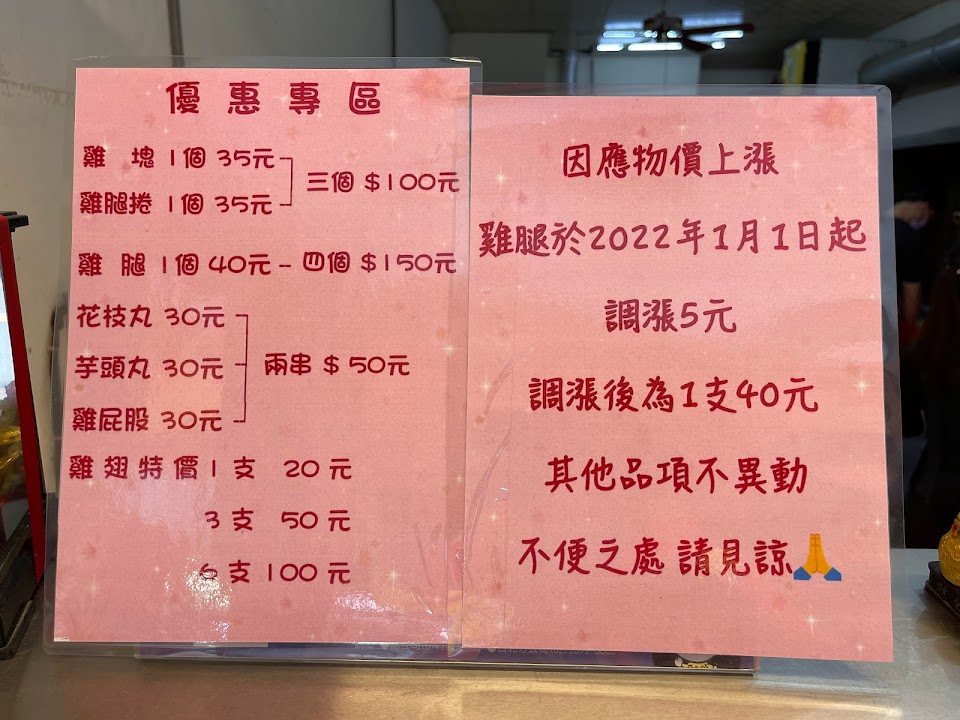 優惠專區
雞塊 1個 35元
雞腿捲 1個 35元
三個 $100元
雞腿 1個 40元 -- 四個 $150元
花枝丸 30元
芋頭丸 30元
雞屁股 30元
兩串 $50元
雞翅特價 1支 20元
3支 50元
6支 100元
因應物價上漲
雞腿於2022年1月1日起
調漲5元
調漲後為1支40元
其他品項不異動
不便之處 請見諒🙏